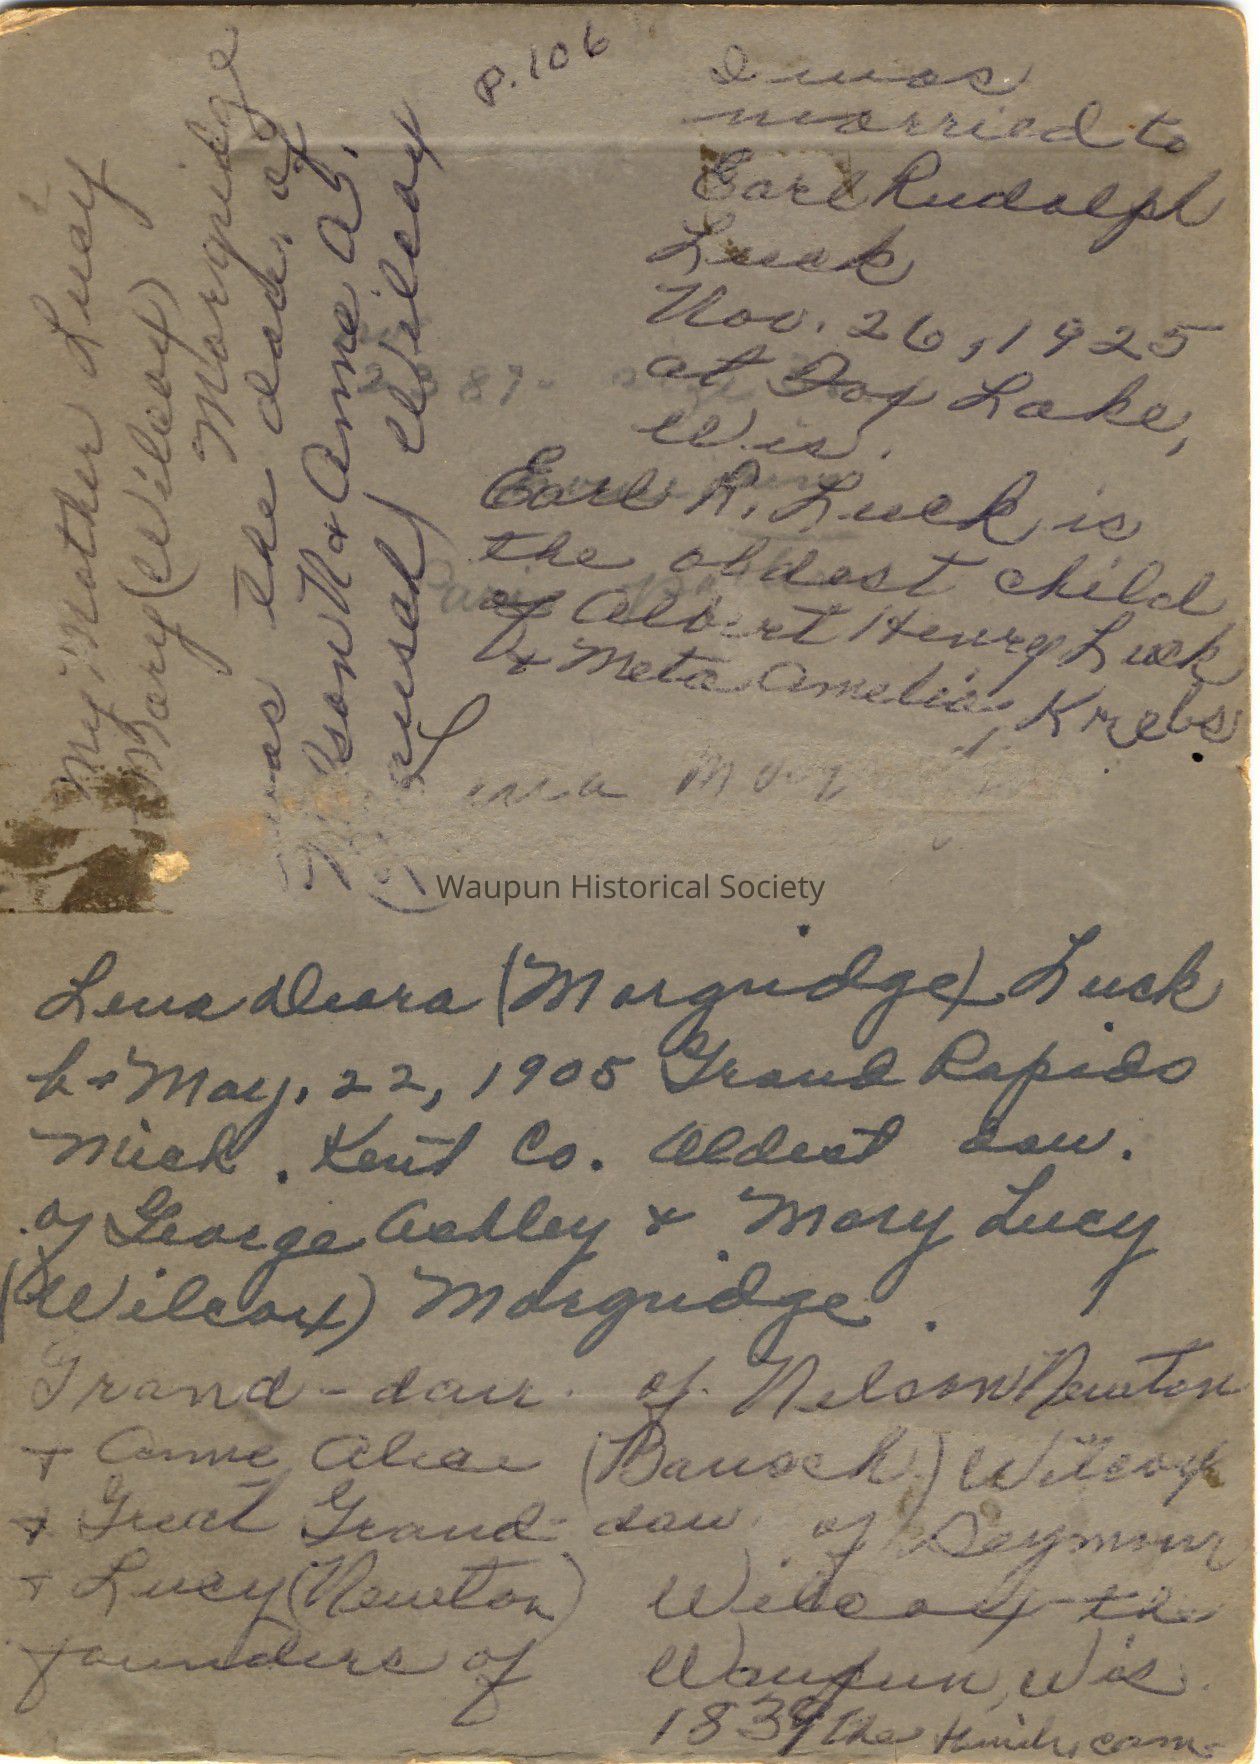 P. 106
I was
married to
Earl Rudolph
Luck
Nov. 26, 1925
at Fox Lake,
Wis.
Earl R. Luck is
the oldest child
of Albert Henry Luck
& Meta Amelia Krebs
My Mother Lucy
Mary (Wilcox)
Morgridge
was the dau. of
N. & Anne A.
Wilcox
Waupun Historical Society
Lena Deora (Morgridge) Luck
b. May. 22, 1905 Grand Rapids
Mich. Kent Co. Oldest dau.
of George Ashley & Mary Lucy
(Wilcox) Morgridge.
Grand-dau. of Nelson Newton
+ Anne Alice (Banoch) Wilcox
+ Great Grand-dau of Seymour
+ Lucy (Newton) Wilcox the
founders of Waupun, Wis.
1839 the family cam-